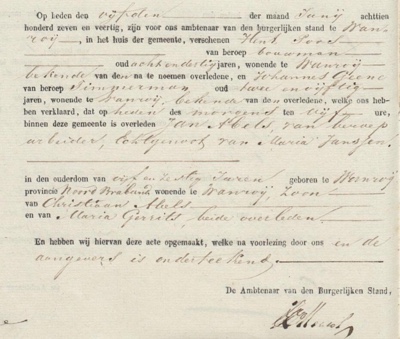 Op heden den vyfden der maand Junij achttien
honderd zeven en veertig, zijn voor ons ambtenaar van den burgerlijken stand te Wan-
roij, in het huis der gemeente, verschenen
van beroep bouwman
oud achtendertig jaren, wonende te Wanroij
bekende van den na te noemen overledene, en Johannes
van beroep Timmerman, oud twee en vijftig
jaren, wonende te Wanroij, bekende van den overledene, welke ons heb-
ben verklaard, dat op heden des morgens ten vijf ure,
binnen deze gemeente is overleden Jan Abels, van beroep
arbeider, Echtgenoot van Maria Janssen.
in den ouderdom van vijf en zestig Jaren geboren te Wanroij
provincie Noord Braband wonende te Wanroij, Zoon
van Christiaan Abels
en van Maria Gerrits, beide overleden.
En hebben wij hiervan deze acte opgemaakt, welke na voorlezing door ons en de
aangevers is onderteekend.
De Ambtenaar van den Burgerlijken Stand,